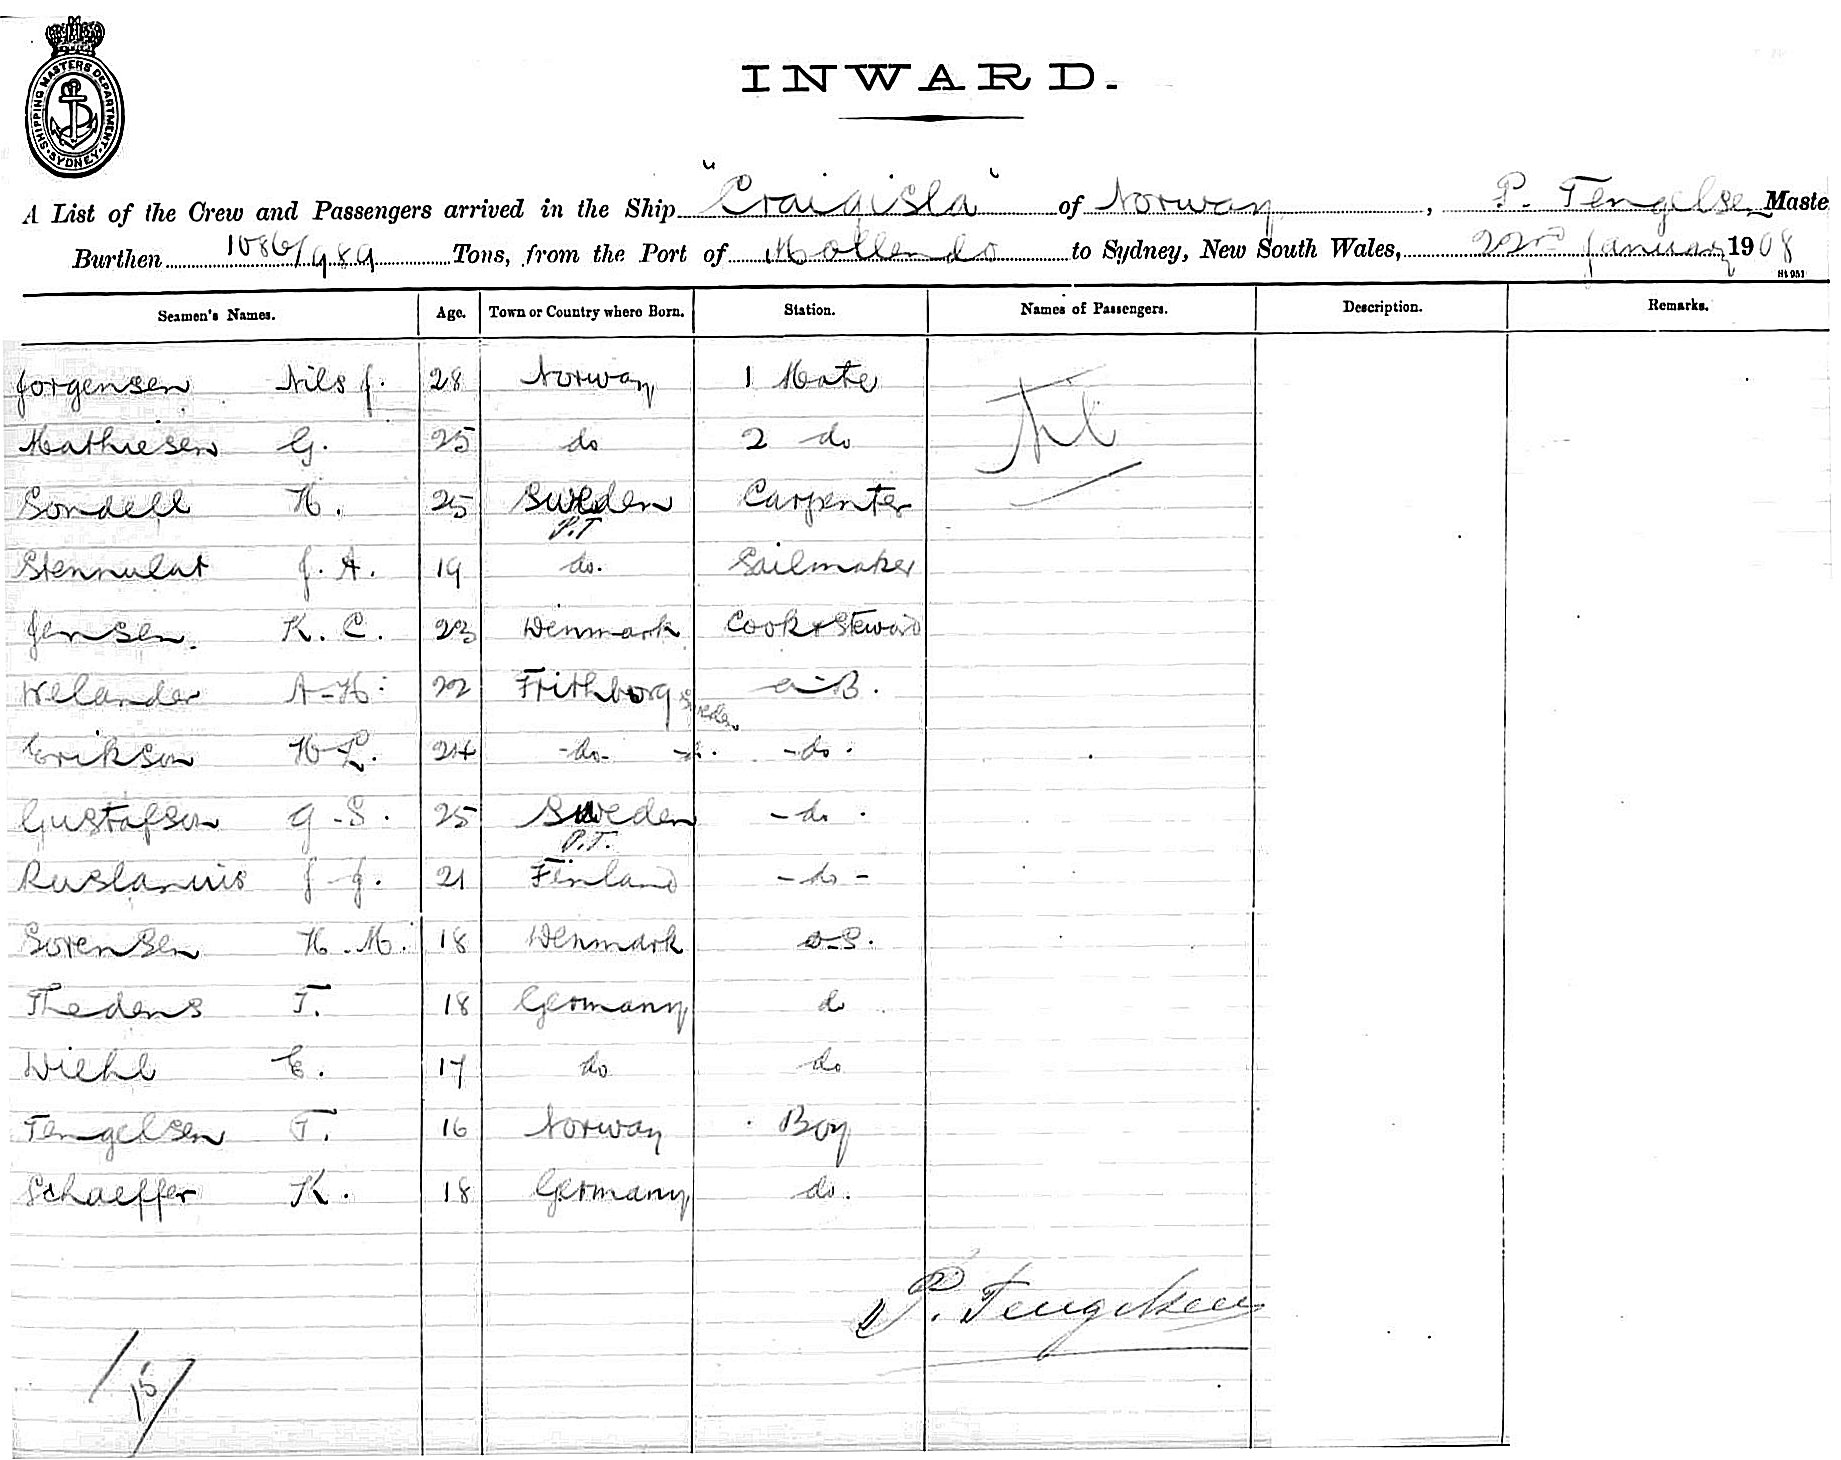 SHIPPING MASTERS DEPARTMENT · SYDNEY ·
INWARD.
A List of the Crew and Passengers arrived in the Ship "Craigisla" of Norway, P. Tengelsen Maste
Burthen 1086/989 Tons, from the Port of Mollendo to Sydney, New South Wales, 22nd January 1908
Seamen's Names. Age. Town or Country where Born. Station. Names of Passengers. Description. Remarks.
Jorgensen Nils J. 28 Norway 1 Mate Nil
Mathiesen G. 25 do 2 do
Sondell H. 25 Sweden Carpenter
P.T
Stennulat J. A. 19 do. Sailmaker
Jensen K. C. 23 Denmark Cook & Steward
Welander A-H. 22 Frithborg Sweden a-B.
Erikson H-L. 24 -do- -do. -do.
Gustafson G-S. 25 Sweden -do.
P.T.
Ruslanuis J-J. 21 Finland -do-
Sorensen H-M. 18 Denmark o-S.
Thedens T. 18 Germany do
Diehl E. 17 do do
Tengelsen T. 16 Norway Boy
Schaeffer K. 18 Germany do.
P. Tengelsen
15